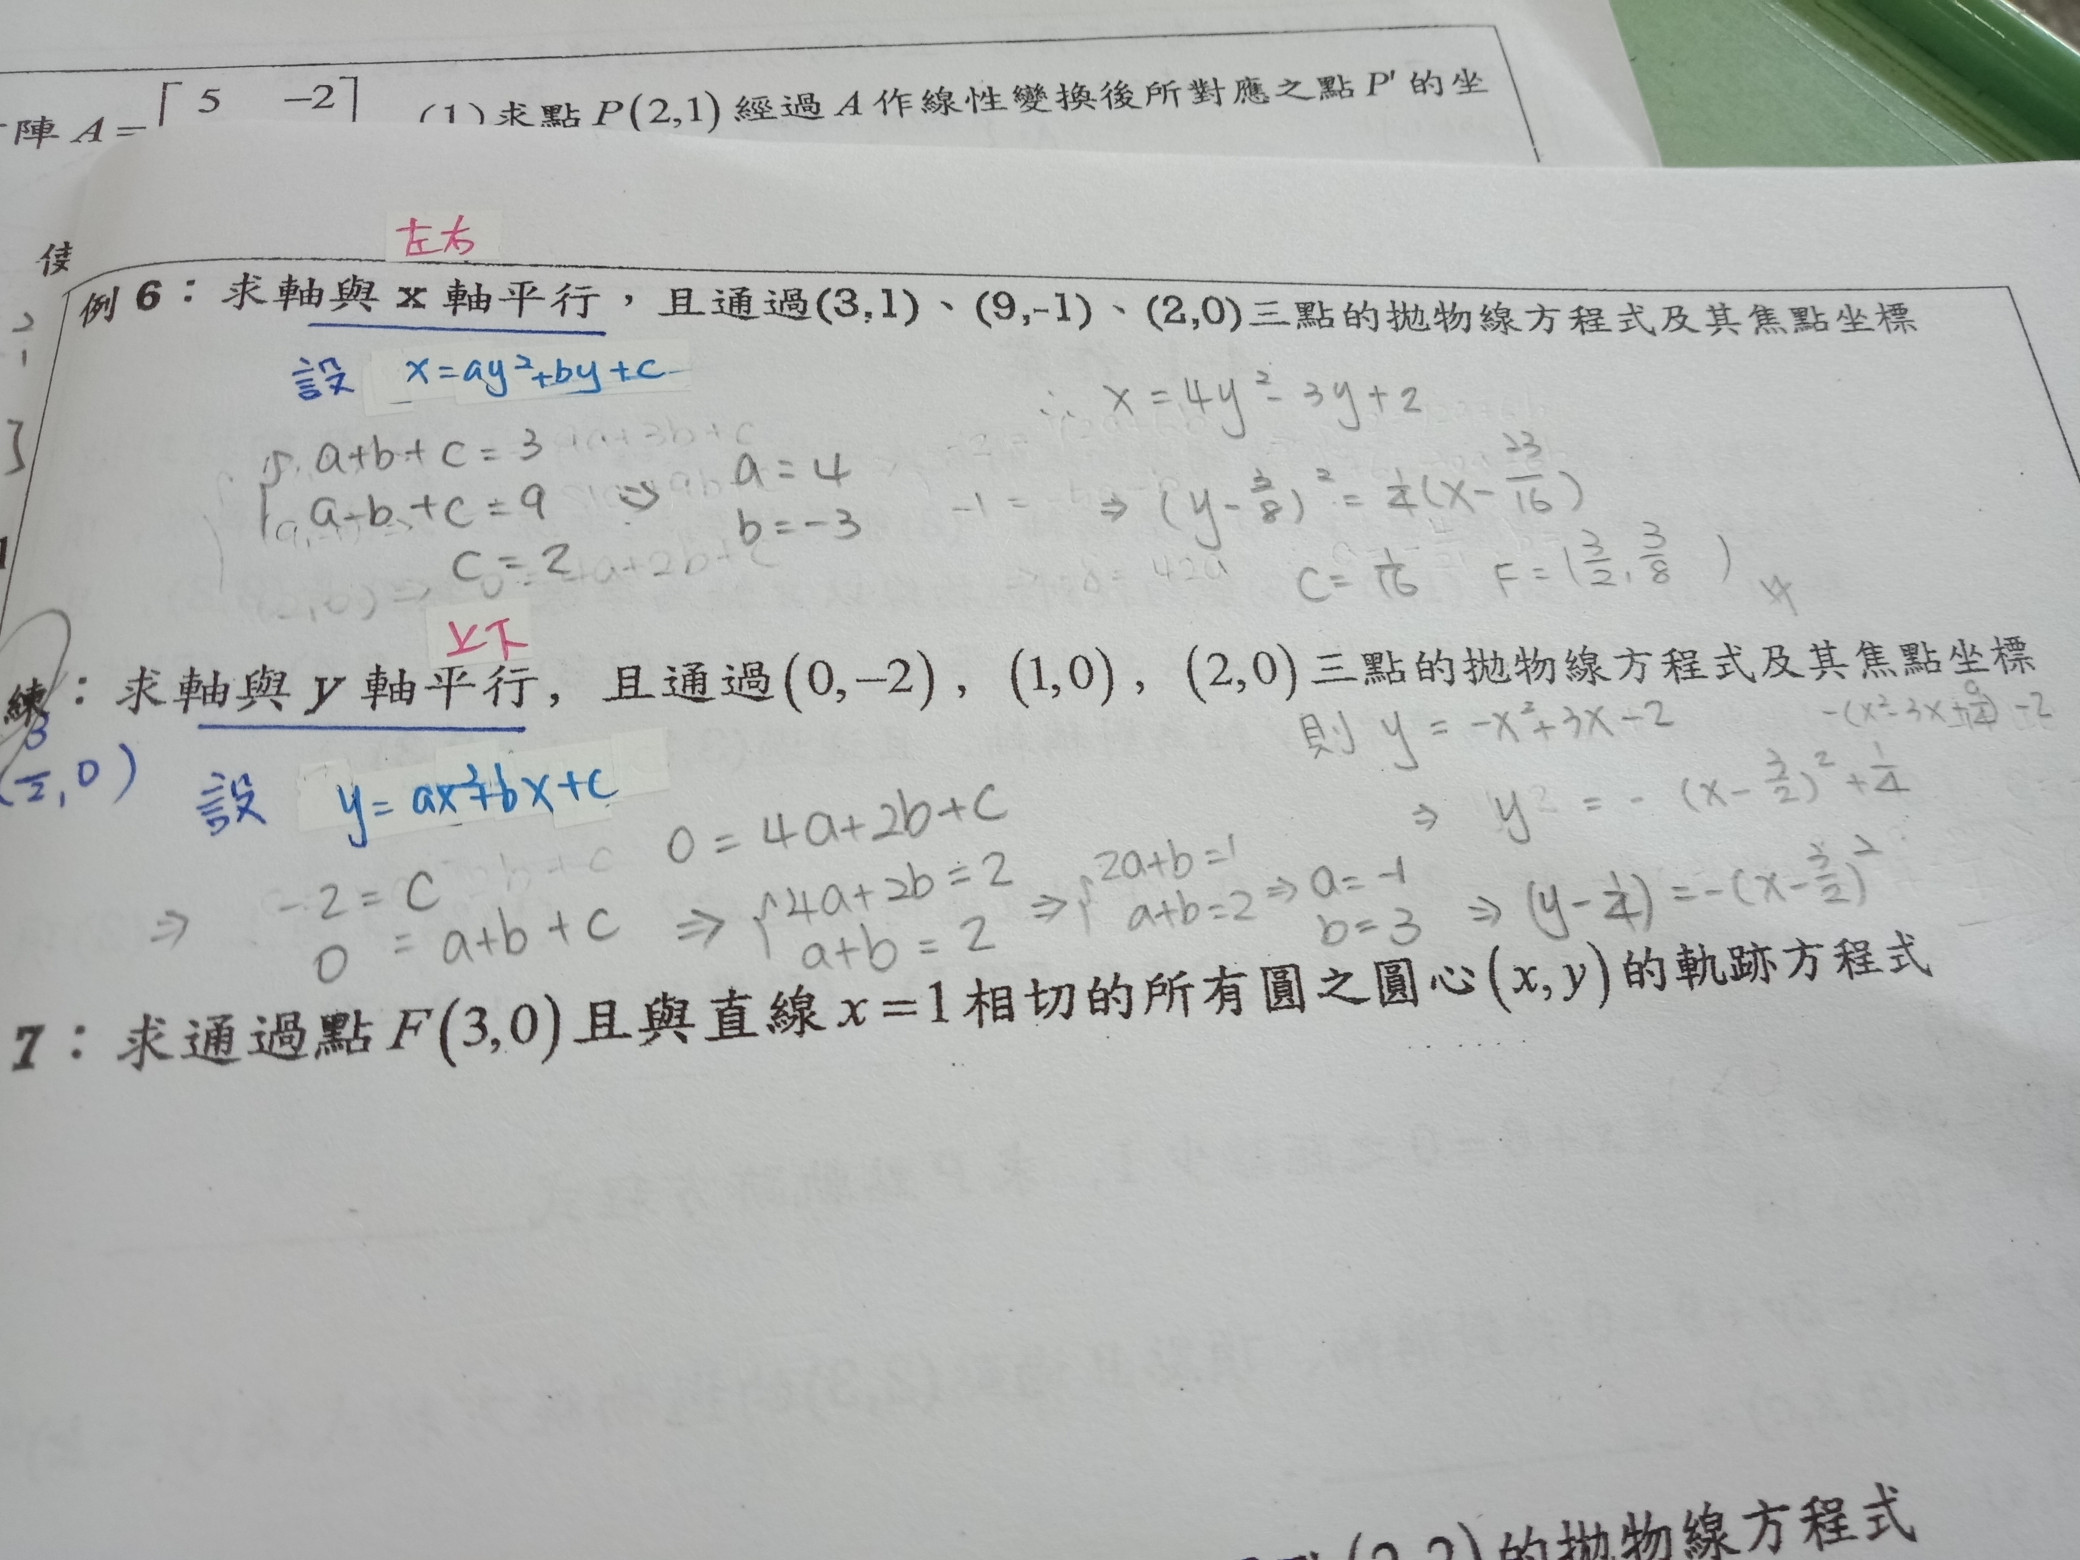 陣 A = [ 5 -2 ] (1)求點 P(2,1) 經過 A 作線性變換後所對應之點 P' 的坐
左右
例 6：求軸與 x 軸平行，且通過(3,1)、(9,-1)、(2,0)三點的拋物線方程式及其焦點坐標
設 x=ay²+by+c
∴ x=4y²-3y+2
a+b+c=3
a-b+c=9 ⇒ a=4
c=2 b=-3
⇒ (y-3/8)²=1/4(x-23/16)
c=1/16 F=(3/2,3/8)
上下
練：求軸與 y 軸平行，且通過(0,-2)，(1,0)，(2,0)三點的拋物線方程式及其焦點坐標
(3/2,0)
設 y=ax²+bx+c
則 y=-x²+3x-2
-(x²-3x+9/4)-2
⇒ y=-(x-3/2)²+1/4
0=4a+2b+c
⇒ -2=c
0=a+b+c ⇒ {4a+2b=2 a+b=2 ⇒ {2a+b=1 a+b=2 ⇒ a=-1 b=3 ⇒ (y-1/4)=-(x-3/2)²
7：求通過點 F(3,0) 且與直線 x=1 相切的所有圓之圓心(x,y)的軌跡方程式
的拋物線方程式